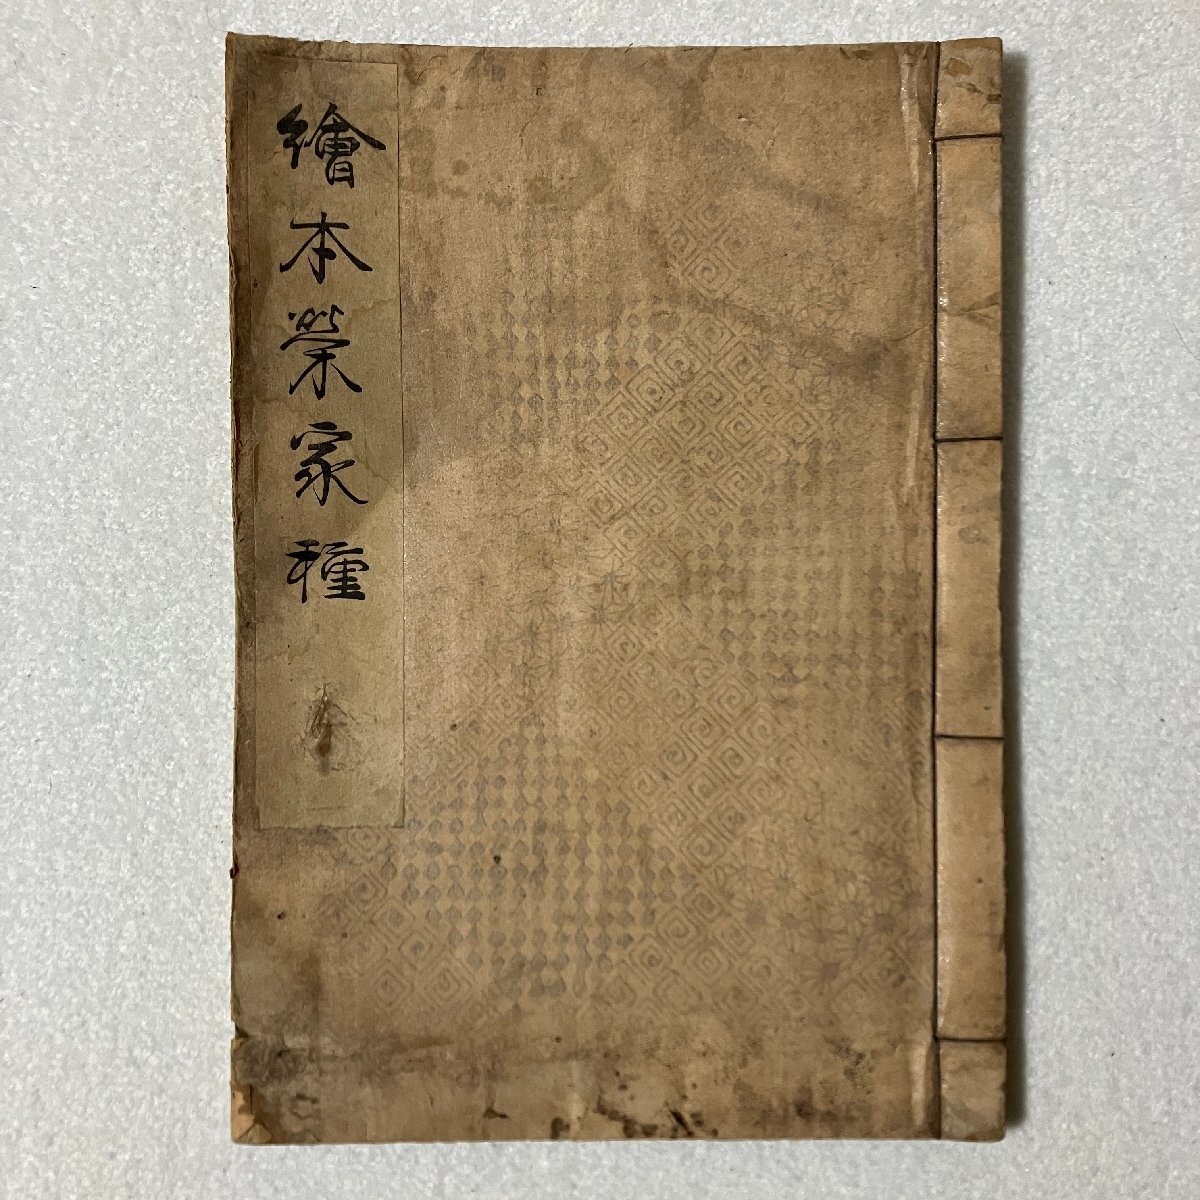 繪本榮家種